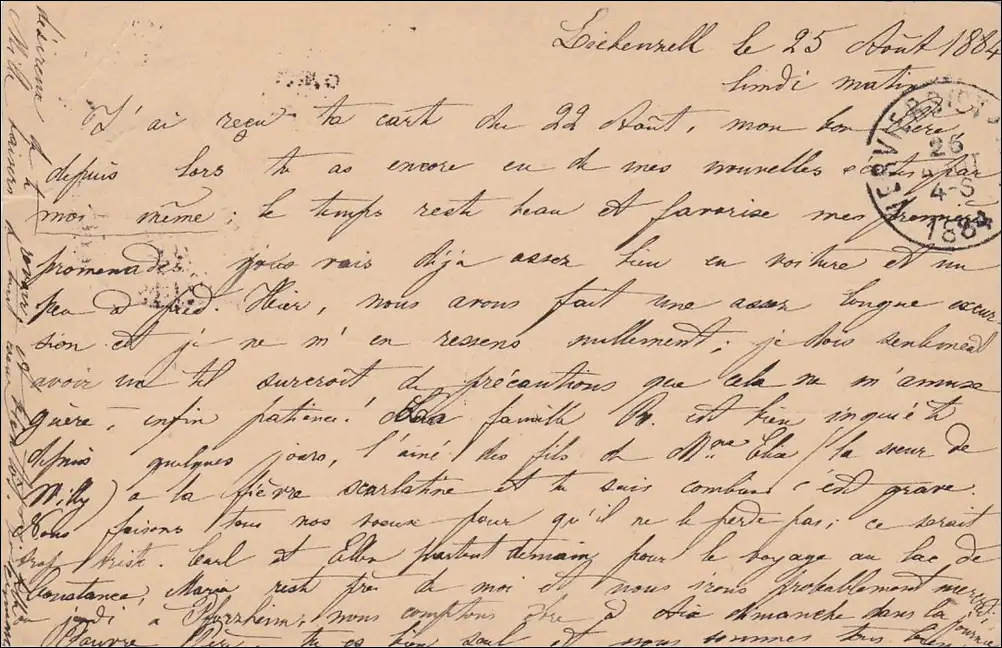 Liebenzell le 25 Août 1884
lundi matin
J'ai reçu ta carte du 22 Août, mon bon père,
depuis lors tu as encore eu de mes nouvelles écrites par
moi même; le temps reste beau et favorise mes premières
promenades, je vais déjà assez bien en voiture et un
peu à pied. Hier, nous avons fait une assez longue excur-
sion et je ne m'en ressens nullement; je dois seulement
avoir un tel surcroît de précautions que cela ne m'amuse
guère, enfin patience! La famille B. est bien inquiète
depuis quelques jours, l'aîné des fils de Mme Elsa (la soeur de
Willy) a la fièvre scarlatine et tu sais combien c'est grave.
Nous faisons tous nos voeux pour qu'il ne le perde pas; ce serait
trop triste. Carl et Ella partent demain pour le voyage au lac de
Constance, Maria reste près de moi et nous irons probablement mercredi
jeudi à Pforzheim, nous comptons être à Aix dimanche dans la journée
Pauvre Père, tu es bien seul et nous sommes tous bien
désireux de te
Willy
VERVIERS
26
4-S
1884